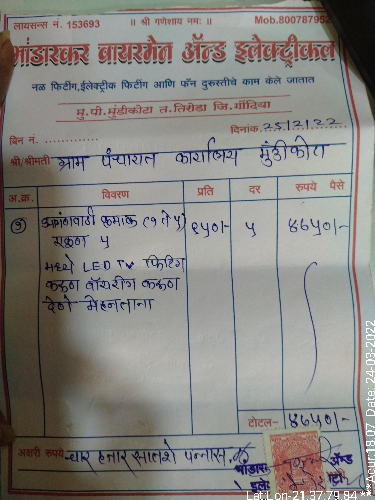 लायसन्स नं. 153693 ॥ श्री गणेशाय नमः ॥ Mob.800787952
भांडारकर वायरमेन ॲन्ड इलेक्ट्रीकल
नळ फिटींग,ईलेक्ट्रीक फिटींग आणि फॅन दुरुस्तीचे काम केले जातात
मु.पो.मुंडीकोटा त.तिरोडा जि.गोंदिया
बिल नं. दिनांक 25/2/22
श्री/श्रीमती ग्राम पंचायत कार्यालय मुंडीकोटा
अ.क्र. विवरण प्रति दर रुपये पैसे
१) अंगणवाडी क्रमांक (१ ते ५) ९५०/- ५ ४७५०/-
एकूण ५
मध्ये LED TV फिटिंग
करून वॉयरींग करून
देणे मेहनताना
टोटल- ४७५०/-
अक्षरी रुपये चार हजार सातशे पन्नास
भांडार ॲण्ड
इले
Lat,Lon-21.37,79.84 ***Acur:18.07 Date: 24-03-2022